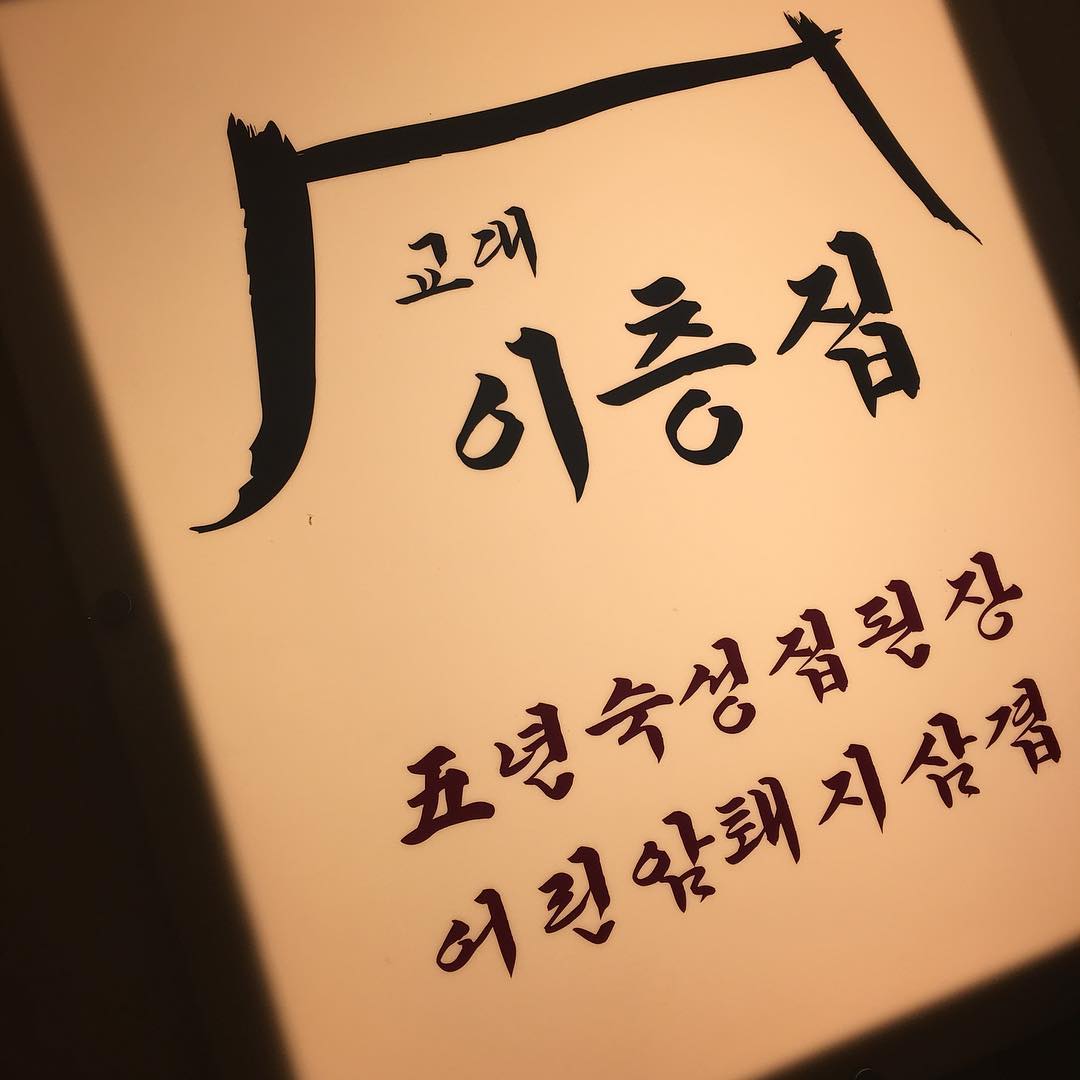 교대
이층집
五년숙성집된장
어린암퇘지삼겹